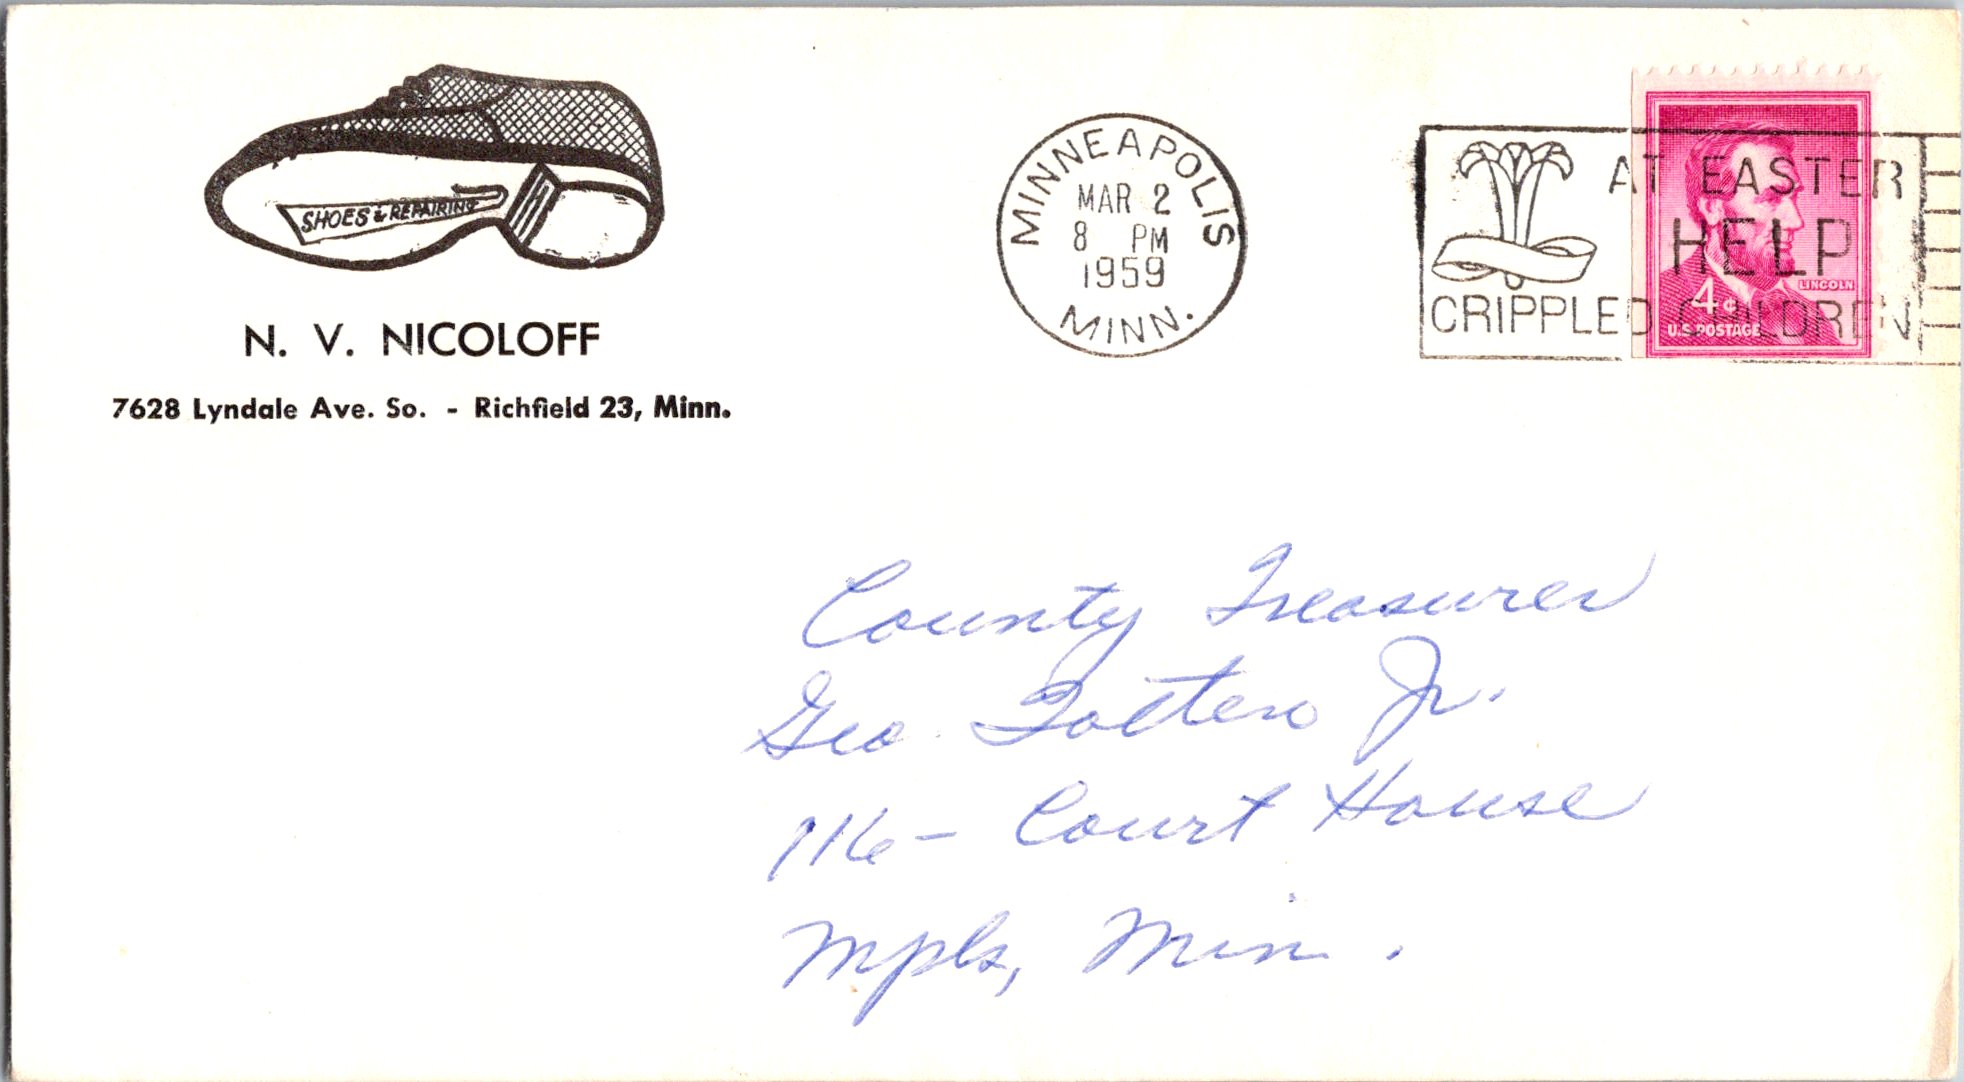 SHOES & REPAIRING
N. V. NICOLOFF
7628 Lyndale Ave. So. - Richfield 23, Minn.
MINNEAPOLIS
MAR 2
8 PM
1959
MINN.
AT EASTER
HELP
CRIPPLED CHILDREN
LINCOLN
4¢
U.S. POSTAGE
County Treasurer
Geo Totten Jr.
116 - Court House
Mpls, Minn.